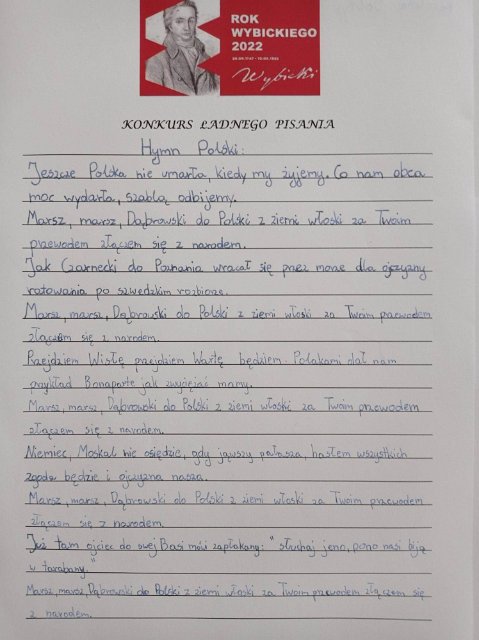 ROK
WYBICKIEGO
2022
29.09.1747 - 10.03.1822
Wybicki
KONKURS ŁADNEGO PISANIA
Hymn Polski:
Jeszcze Polska nie umarła, kiedy my żyjemy. Co nam obca
moc wydarła, szablą odbijemy.
Marsz, marsz, Dąbrowski do Polski z ziemi włoski za Twoim
przewodem złączem się z narodem.
Jak Czarnecki do Poznania wracał się przez morze dla ojczyzny
ratowania po szwedzkim rozbiorze.
Marsz, marsz, Dąbrowski do Polski z ziemi włoski za Twoim przewodem
złączem się z narodem.
Przejdziem Wisłę przejdziem Wartę będziem Polakami dał nam
przykład Bonaparte jak zwyciężać mamy.
Marsz, marsz, Dąbrowski do Polski z ziemi włoskic za Twoim przewodem
złączem się z narodem.
Niemiec, Moskal nie osiędzie, gdy jąwszy pałasza, hasłem wszystkich
zgoda będzie i ojczyzna nasza.
Marsz, marsz, Dąbrowski do Polski z ziemi włoski za Twoim przewodem
złączem się z narodem.
Już tam ojciec do swej Basi mówi zapłakany: "słuchaj jeno, pono nasi biją
w tarabany."
Marsz, marsz, Dąbrowski do Polski z ziemi włoski za Twoim przewodem złączem się
z narodem.